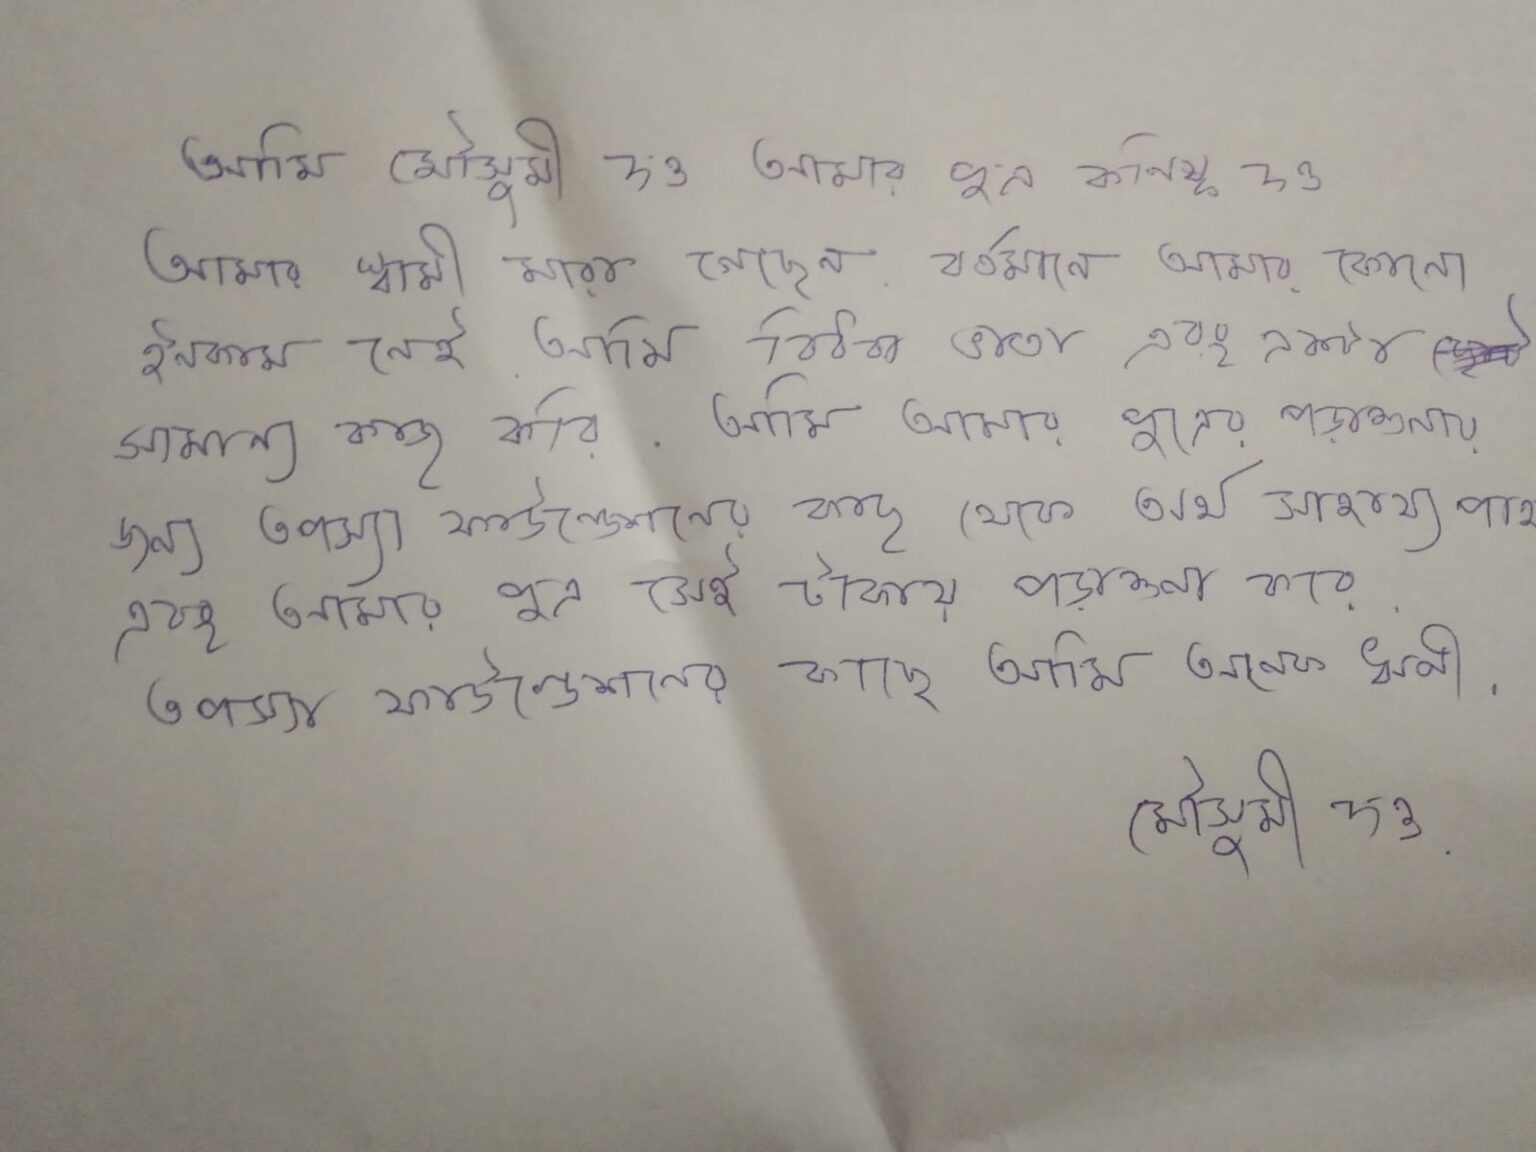 আমি মৌসুমী দত্ত আমার পুত্র কনিষ্ক দত্ত
আমার স্বামী মারা গেছেন. বর্তমানে আমার কোনো
ইনকাম নেই. আমি বিধবা ভাতা এবং একটা
সামান্য কাজ করি. আমি আমার পুত্রের পড়াশুনার
জন্য তপস্যা ফাউন্ডেশনের কাছ থেকে অর্থ সাহায্য পাই
এবং আমার পুত্র সেই টাকায় পড়াশুনা করে.
তপস্যা ফাউন্ডেশনের কাছে আমি অনেক ঋণী.
মৌসুমী দত্ত.